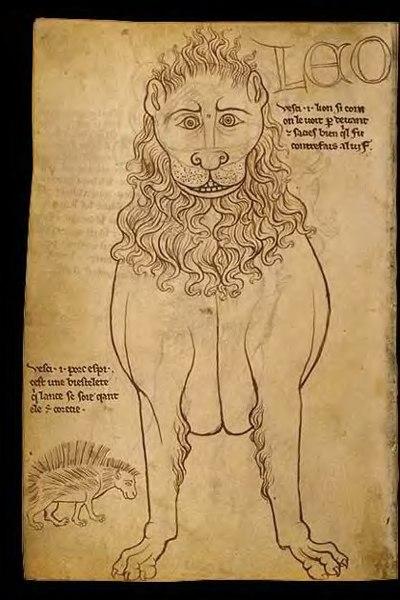 Leo
Vesci · i · lion si com
on le voit p devant
⁊ sacies bien q̄l fu
contrefais al vif.
Vesci · i · porc espi ·
cest une biestelete
q̄ lance se soie qant
ele ē corecie ·